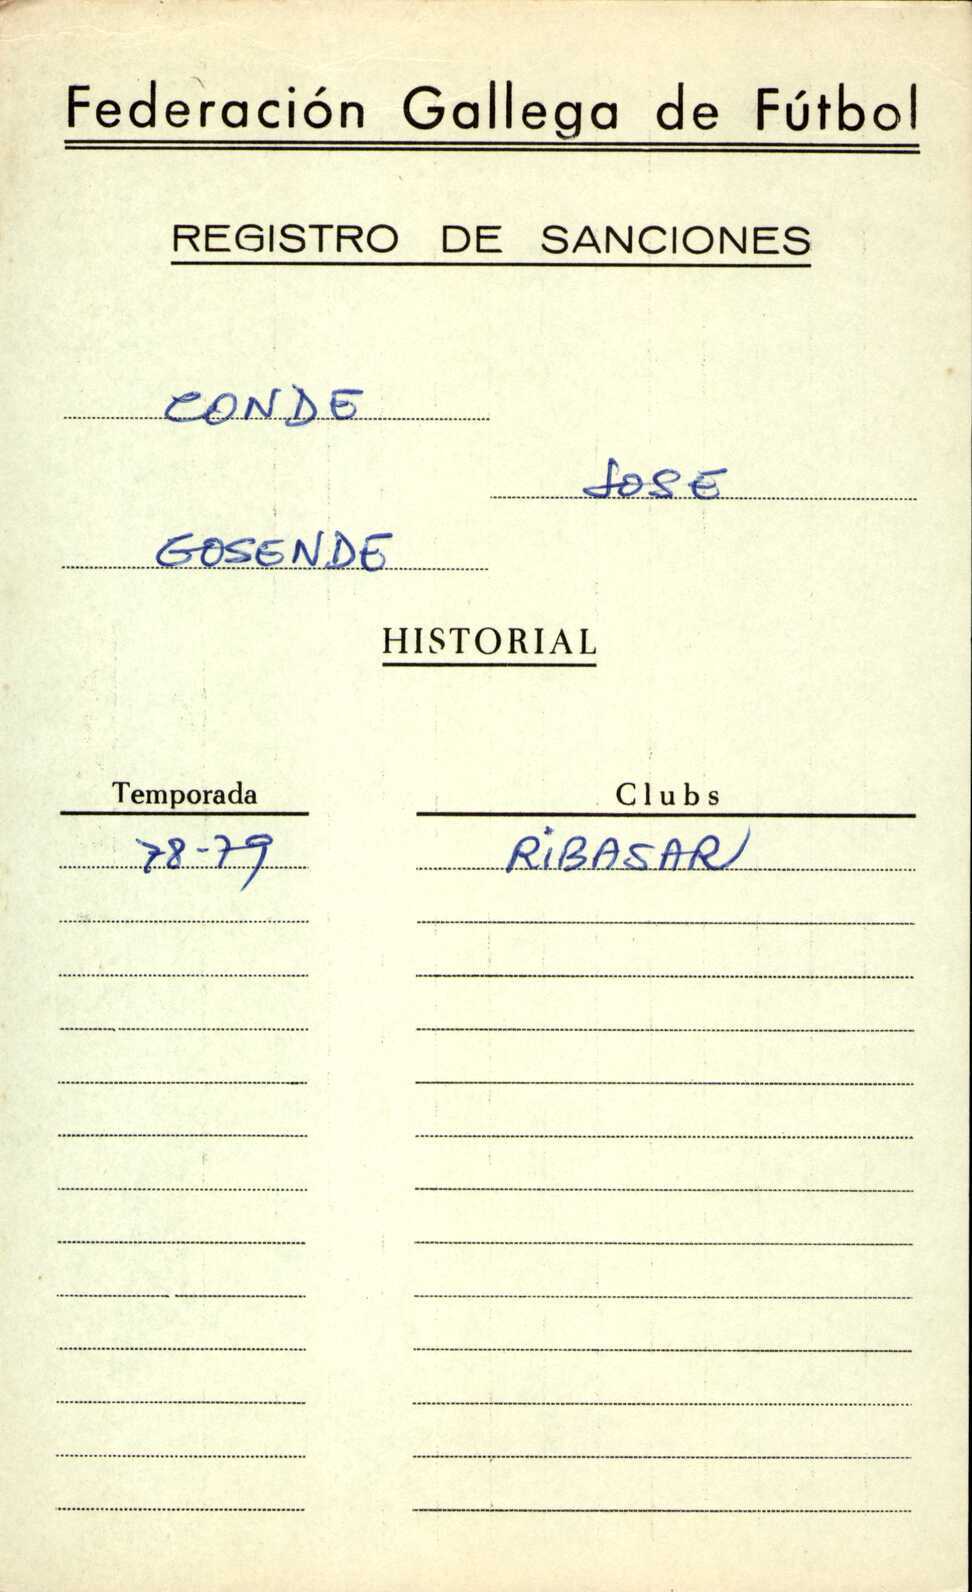 Federación Gallega de Fútbol
REGISTRO DE SANCIONES
CONDE
JOSE
GOSENDE
HISTORIAL
Temporada Clubs
78-79 RIBASAR